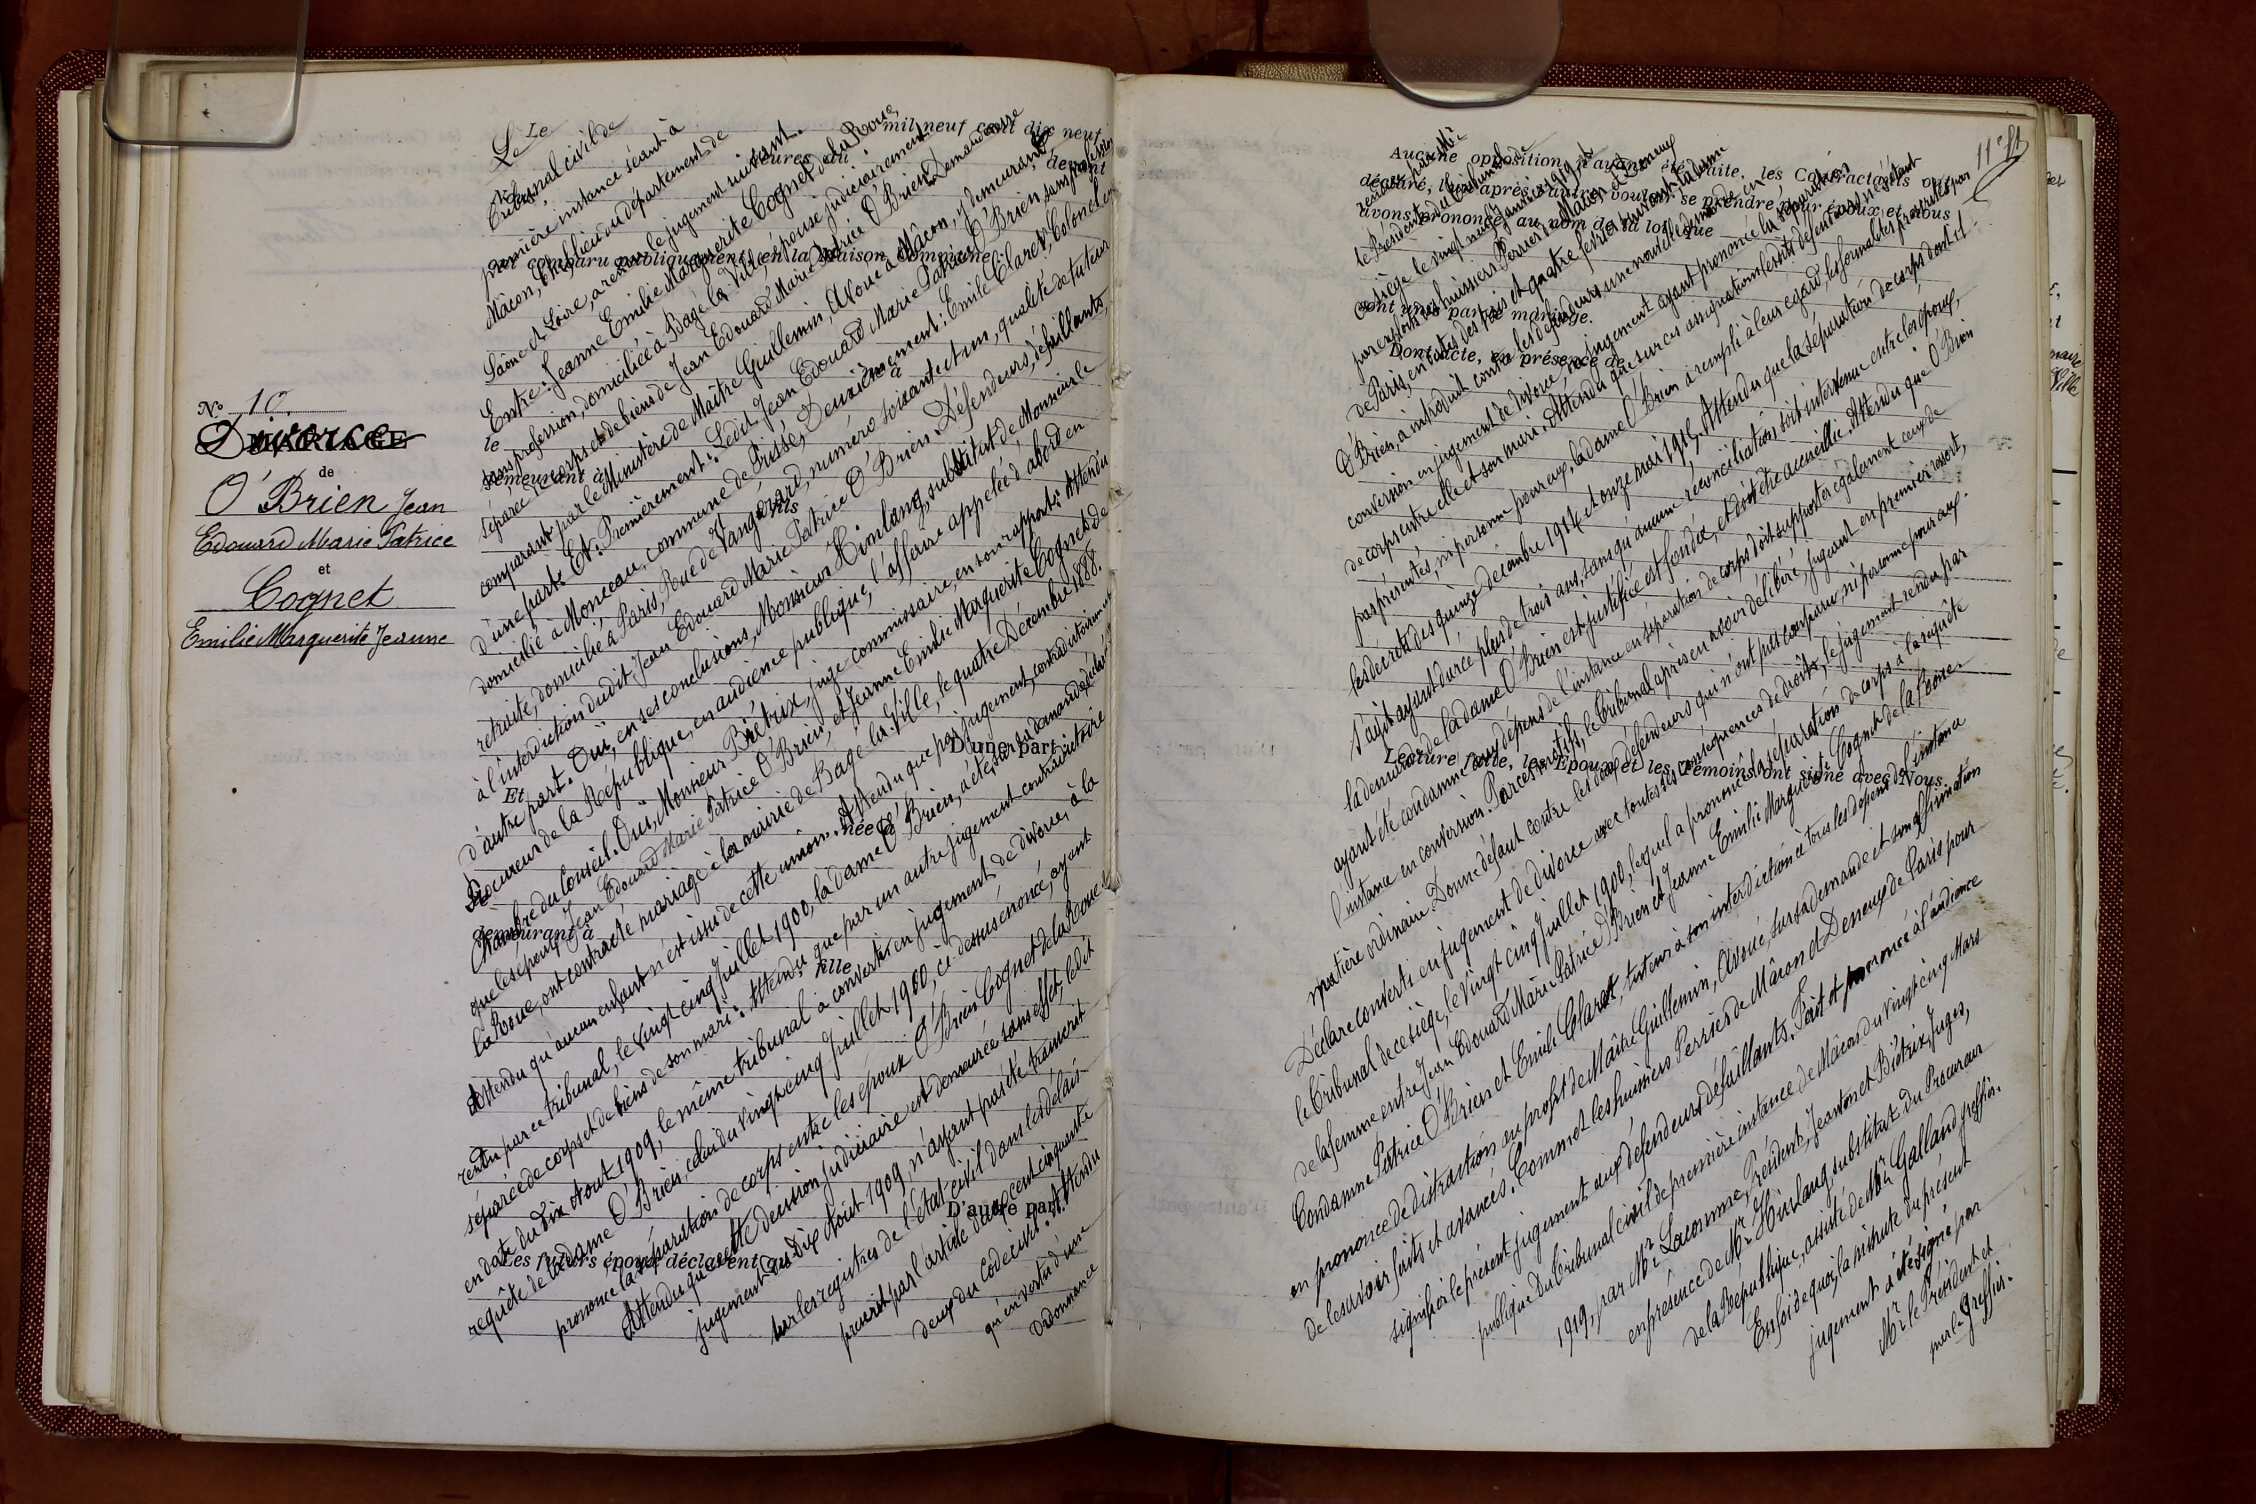 N° 10.
Divorce
MARIAGE
de
O'Brien Jean
Edouard Marie Patrice
et
Cognet
Emilie Marguerite Jeanne
Le
Tribunal civil de
première instance séant à
Mâcon, Chef lieu du département de
Saône et Loire, a rendu le jugement suivant.
Entre: Jeanne Emilie Marguerite Cognet de la Roue,
sans profession, domiciliée à Bagé la Ville, épouse judiciairement
séparée de corps et de biens de Jean Edouard Marie Patrice O'Brien. Demanderesse
comparant par le Ministère de Maître Guillemin, Avoué à Mâcon, y demeurant
d'une part. Et: Premièrement: Ledit Jean Edouard Marie Patrice O'Brien, sans profession
domicilié à Monceau, commune de Prissé, Deuxièmement: Emile Claret, Colonel en
retraite, domicilié à Paris, Rue de Vaugirard, numéro soixante et un, qualité de tuteur
à l'interdiction dudit Jean Edouard Marie Patrice O'Brien. Défendeurs, défaillants,
d'autre part. Ouï, en ses conclusions, Monsieur Himlang, substitut de Monsieur le
Procureur de la République, en audience publique, l'affaire appelée d'abord en
Chambre du Conseil. Ouï, Monsieur Biétrix, juge commissaire, en son rapport: Attendu
que les époux Jean Edouard Marie Patrice O'Brien, et Jeanne Emilie Marguerite Cognet de
la Roue, ont contracté mariage à la mairie de Bagé la Ville, le quatre Décembre 1888.
Attendu qu'aucun enfant n'est issu de cette union. Attendu que par jugement, contradictoirement
rendu par ce tribunal, le vingt cinq Juillet 1900, la dame O'Brien, a été, sur sa demande déclarée
séparée de corps et de biens de son mari: Attendu que par un autre jugement contradictoire
en date du Dix Aout 1909, le même tribunal a converti en jugement de divorce, à la
requête de la dame O'Brien, celui du vingt cinq Juillet 1900, ci-dessus énoncé, ayant
prononcé la séparation de corps entre les époux O'Brien Cognet de la Roue.
Attendu que cette décision judiciaire est demeurée sans effet, ledit
jugement du Dix Aout 1909, n'ayant pas été transcrit
sur les registres de l'état civil dans les délais
prescrits par l'article deux cent cinquante
deux du code civil: Attendu
qu'en vertu d'une
Ordonnance
Le
mil neuf cent dix neuf
heures du
devant
ont comparu publiquement en la Maison Commune:
le
à
demeurant à
fils
D'une part
Et
née à
le
demeurant à
fille
D'autre part
Les futurs époux déclarent
11e ft
rendue par Mr
le Président du Tribunal de
ce siège le vingt neuf janvier 1919, et
par exploits des huissiers Perrier de Mâcon et Desneux
de Paris, en dates des trois et quatre février suivant, la dame
O'Brien, a introduit contre les défendeurs une nouvelle demande en
conversion en jugement de divorce de ce jugement ayant prononcé la séparation
de corps entre elle et son mari. Attendu que sur ces assignations lesdits défendeurs ne s'étant
pas présentés, ni personne pour eux, la dame O'Brien a rempli à leur égard, les formalités prescrites par
les décrets des quinze décembre 1914 et onze mai 1915, Attendu que la séparation de corps dont il
s'agit ayant duré plus de trois ans, sans qu'aucune réconciliation soit intervenue entre les époux,
la demande de la dame O'Brien est justifiée est fondée, et doit être accueillie. Attendu que O'Brien
ayant été condamné aux dépens de l'instance en séparation de corps doit supporter également ceux de
l'instance en conversion. Par ces motifs, le tribunal après en avoir délibéré, jugeant en premier ressort,
matière ordinaire. Donne défaut contre les deux défendeurs qui n'ont pas comparu ni personne pour eux.
Déclare converti en jugement de divorce avec toutes ses conséquences de droits, le jugement rendu par
le tribunal de ce siège, le vingt cinq Juillet 1900, lequel a prononcé la séparation de corps à la requête
de la femme entre Jean Edouard Marie Patrice O'Brien et Jeanne Emilie Marguerite Cognet de la Roue.
Condamne Patrice O'Brien et Emile Claret, tuteur à son interdiction à tous les dépens de l'instance
en prononce de distraction au profit de Maître Guillemin, Avoué, sur sa demande et son affirmation
de les avoir faits et avancés. Commet les huissiers Perrier de Mâcon et Desneux de Paris pour
signifier le présent jugement aux défendeurs défaillants. Fait et prononcé à l'audience
publique du tribunal civil de première instance de Mâcon du vingt cinq Mars
1919, par Mr Lacomme, Président, Jeanton et Biétrix, Juges,
en présence de Mr Himlang, substitut du Procureur
de la République, assisté de Mr Galland greffier.
En foi de quoi, la minute du présent
jugement a été signée par
Mr le Président et
par le Greffier.
Aucune opposition n'ayant été faite, les Contractants ont
déclaré, l'un après l'autre vouloir se prendre pour époux et nous
avons prononcé au nom de la loi, que
sont unis par le mariage.
Dont acte, en présence de
Lecture faite, les Epoux et les Témoins ont signé avec Nous.